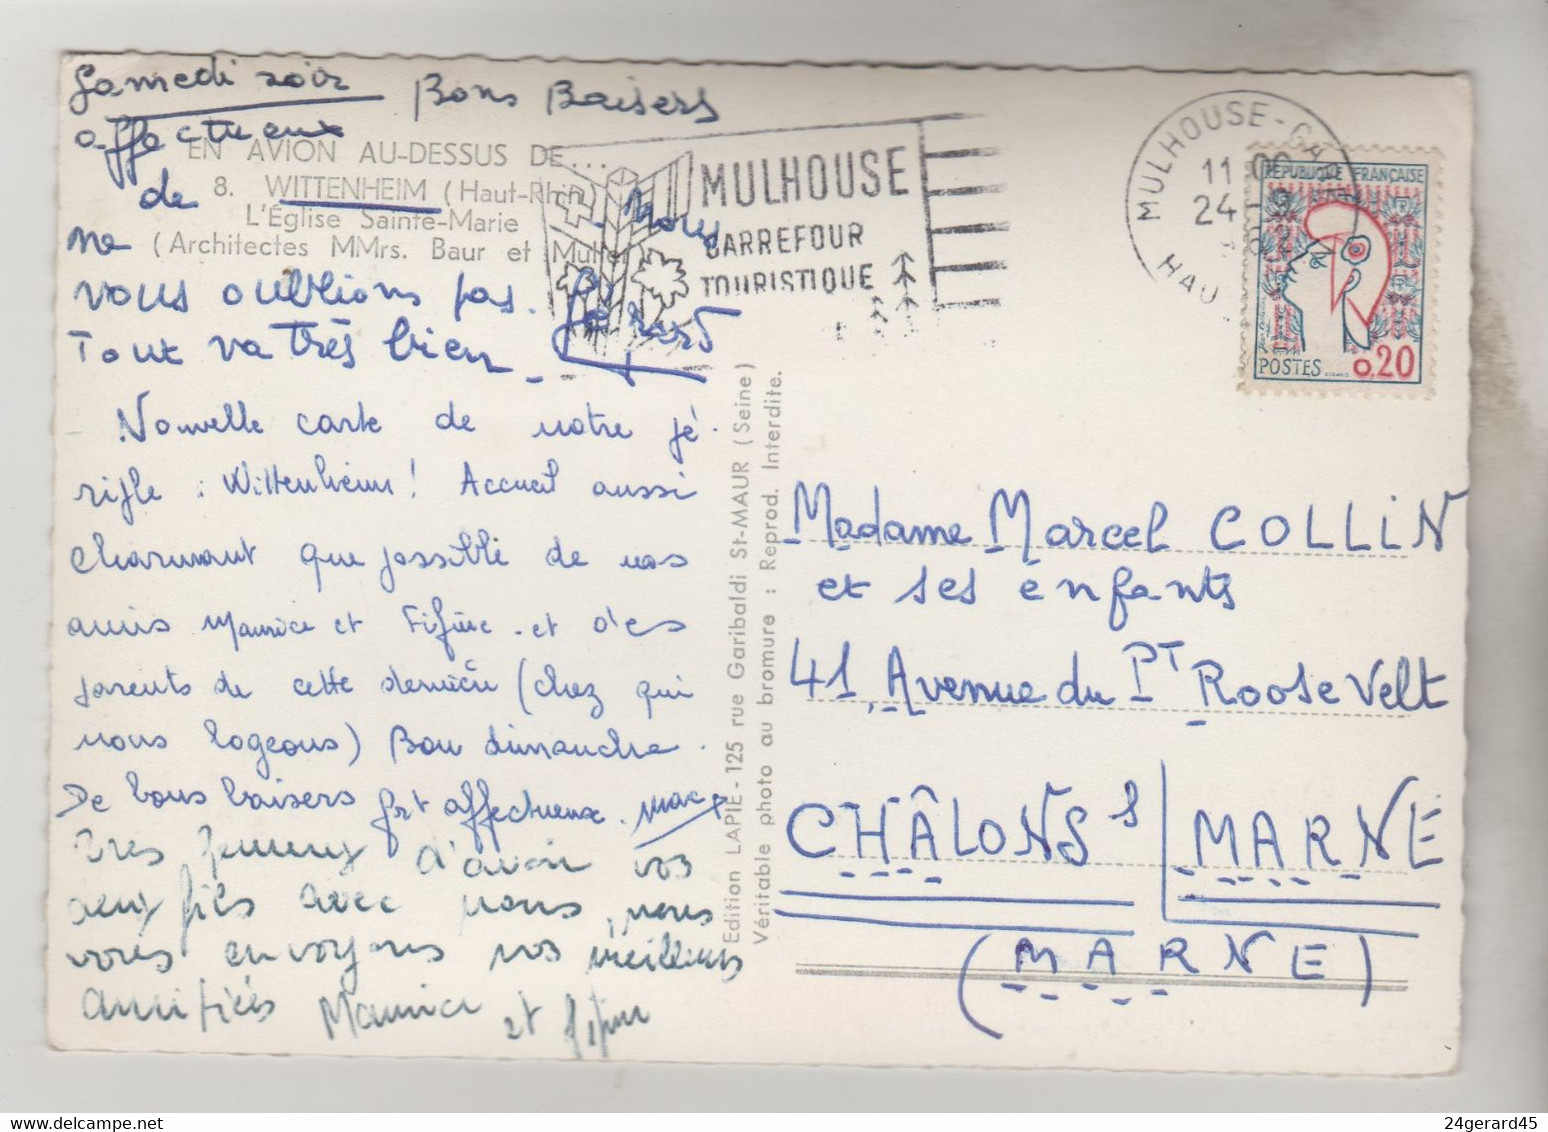 Samedi soir Bons Baisers
affectueux
EN AVION AU-DESSUS DE...
de 8. WITTENHEIM (Haut-Rhin) Nous
L'Église Sainte-Marie
ne (Architectes MMrs. Baur et Muller)
vous oublions pas.
Tout va très bien Gérard
Nouvelle carte de notre pé-
riple : Wittenheim ! Accueil aussi
charmant que possible de nos
amis Maurice et Fifine et des
parents de cette dernière (chez qui
nous logeons) Bon dimanche.
De bons baisers fort affectueux. Marc
Très heureux d'avoir vos
deux fils avec nous, nous
vous envoyons nos meilleurs
amitiés Maurice et Fifine
Edition LAPIE - 125 rue Garibaldi St-MAUR (Seine)
Véritable photo au bromure : Reprod. Interdite.
MULHOUSE
CARREFOUR
TOURISTIQUE
MULHOUSE-GA
11
24
HAU
RÉPUBLIQUE FRANÇAISE
POSTES 0,20
Madame Marcel COLLIN
et ses enfants
41, Avenue du Pt Roosevelt
CHÂLONS s/ MARNE
(MARNE)
24gerard45